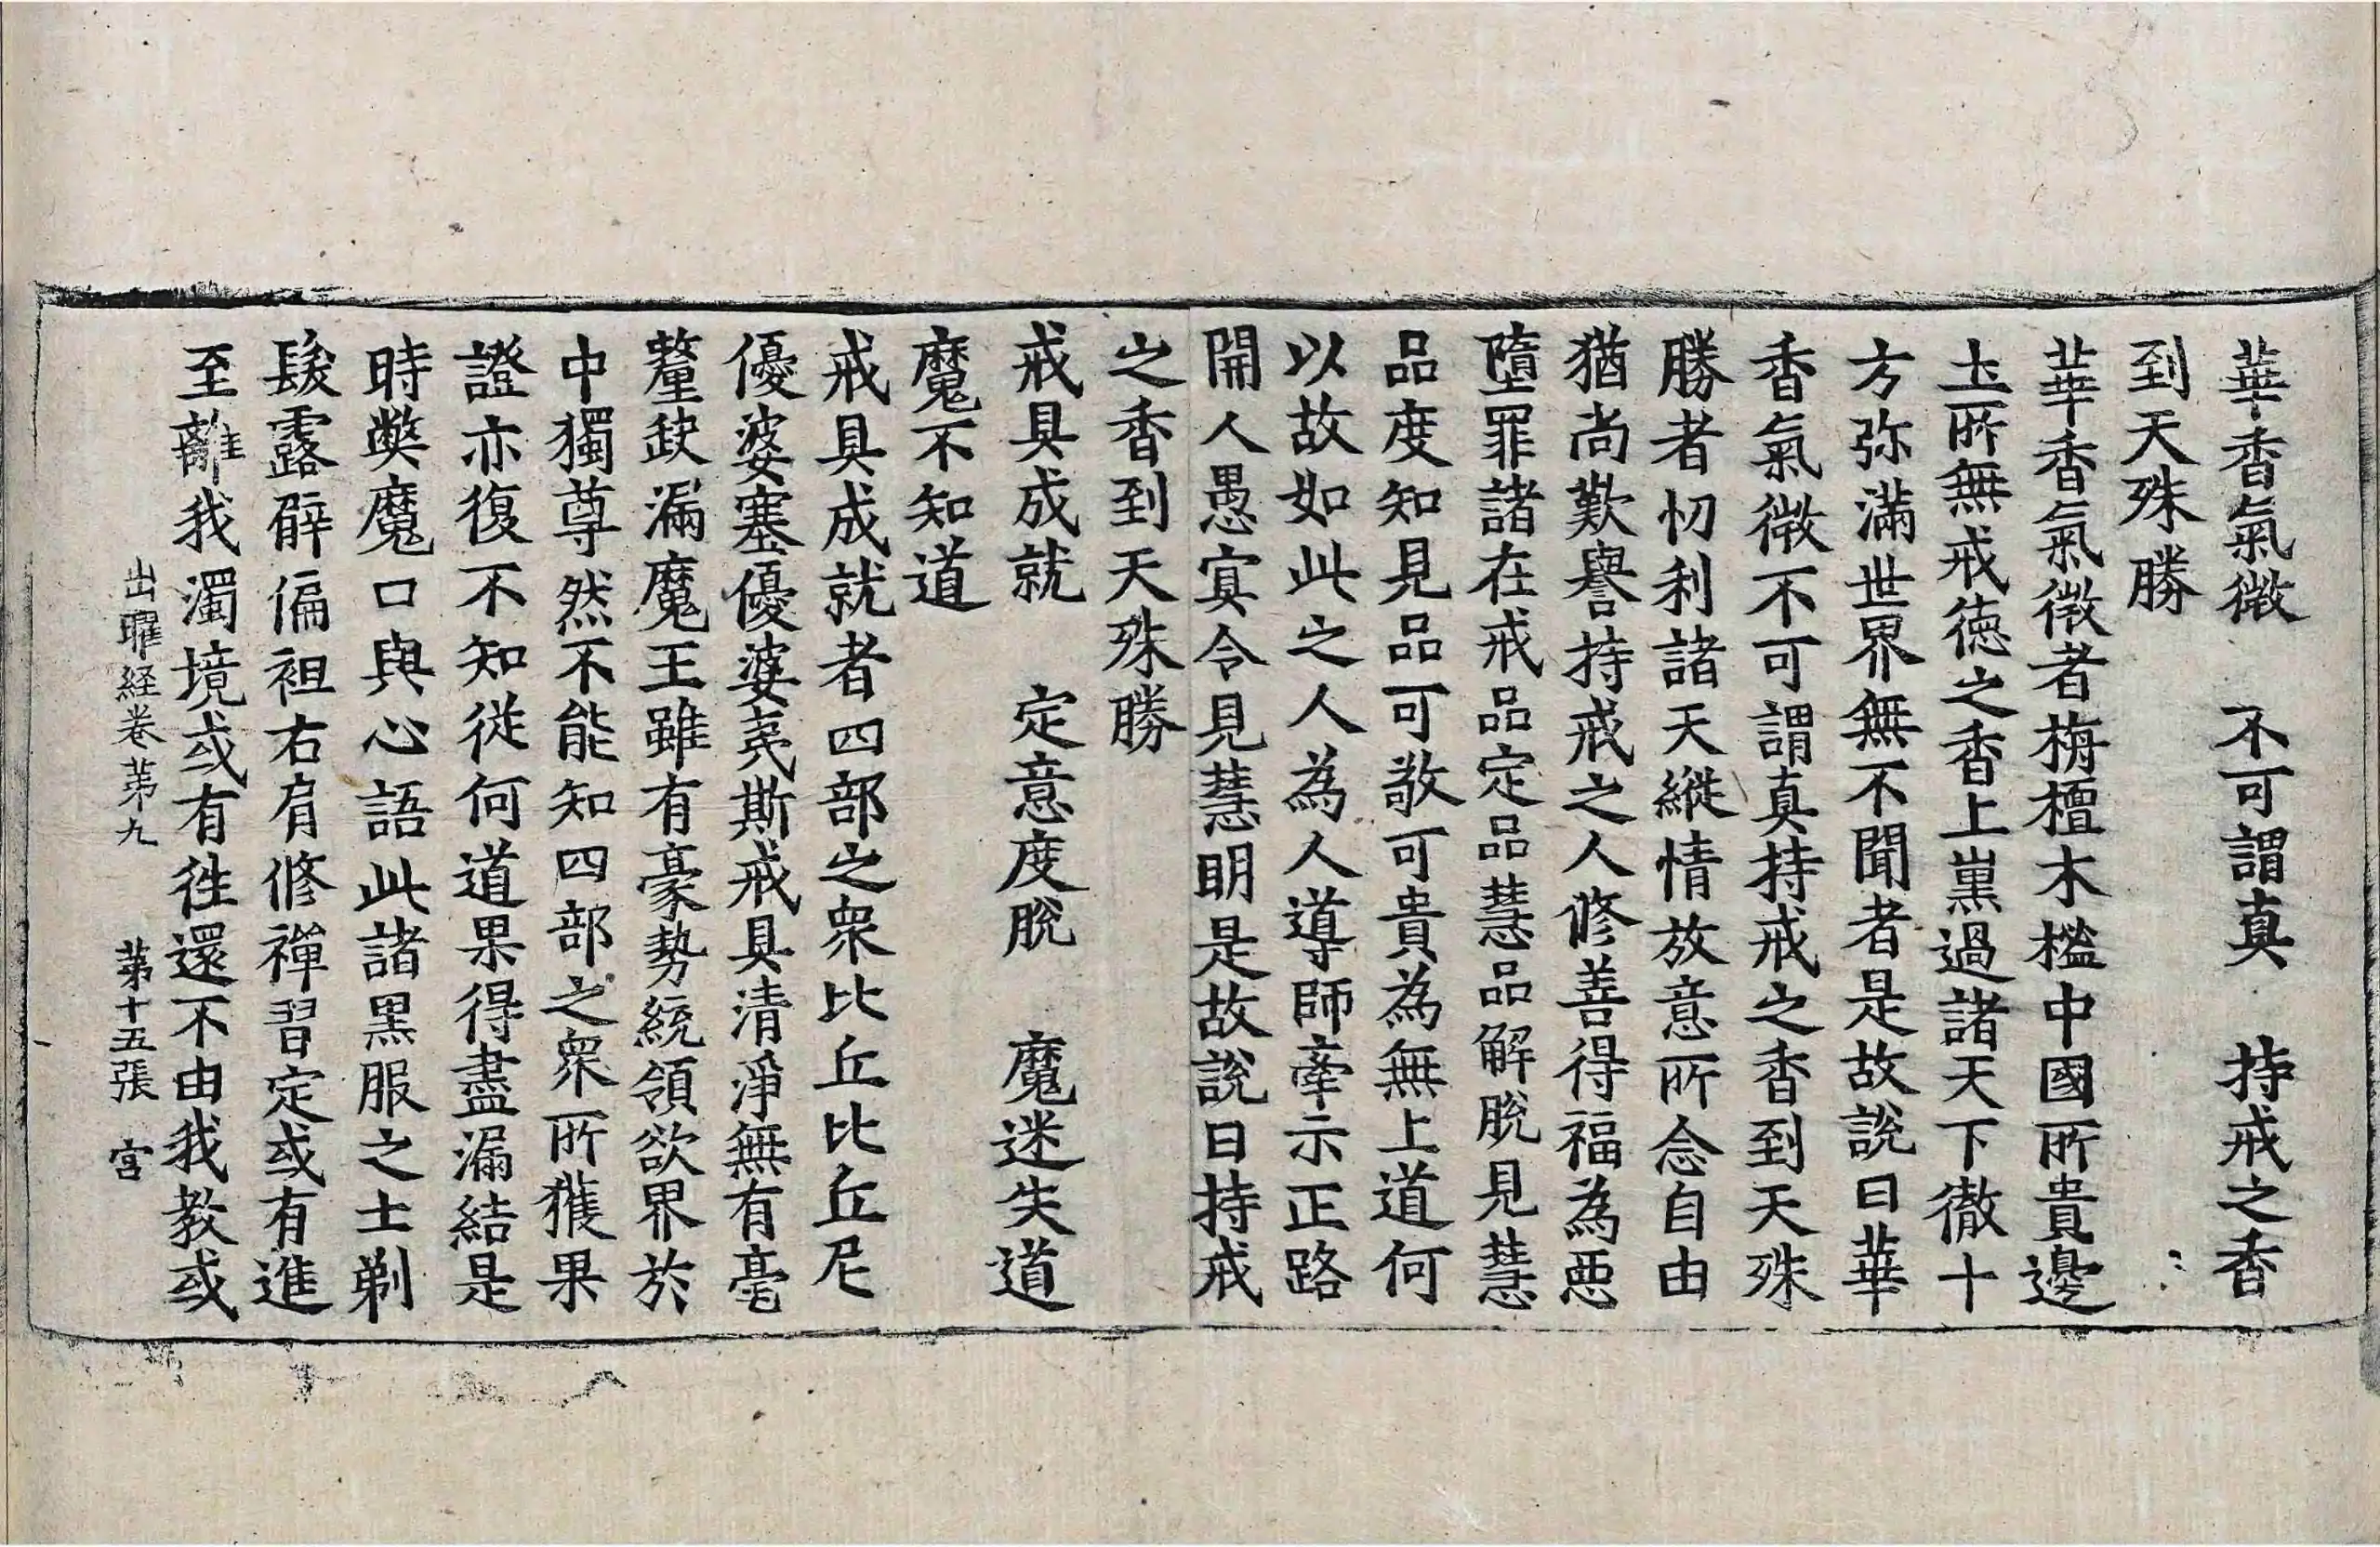 華香氣微　不可謂真　持戒之香
到天殊勝
華香氣微者栴檀木櫁中國所貴邊
土所無戒德之香上熏過諸天下徹十
方弥滿世界無不聞者是故說曰華
香氣微不可謂真持戒之香到天殊
勝者忉利諸天縱情放意所念自由
猶尚歎譽持戒之人修善得福為惡
墮罪諸在戒品定品慧品解脫見慧
品度知見品可敬可貴為無上道何
以故如此之人為人導師牽示正路
開人愚冥令見慧明是故說曰持戒
之香到天殊勝
戒具成就　定意度脫　魔迷失道
魔不知道
戒具成就者四部之眾比丘比丘尼
優婆塞優婆夷斯戒具清淨無有毫
釐缺漏魔王雖有豪勢統領欲界於
中獨尊然不能知四部之眾所獲果
證亦復不知從何道果得盡漏結是
時弊魔口與心語此諸黑服之士剃
髮露臂偏袒右肩修禪習定或有進
至離我濁境或有往還不由我教或
出曜経卷苐九　苐十五張　宮